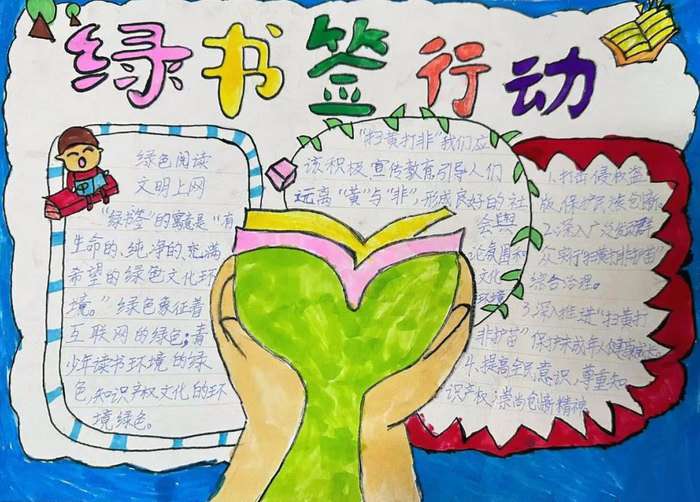 绿书签行动
绿色阅读
文明上网
"绿书签"的寓意是"有
生命的、纯净的、充满
希望的绿色文化环
境。"绿色象征着
互联网的绿色;青
少年读书环境的绿
色,知识产权文化的环
境绿色。
"扫黄打非"我们应
该积极宣传教育引导人们
远离"黄"与"非",形成良好的社
会舆
论氛围和
文化
环境
1.打击侵权盗
版,保护
2.深入广泛发动群
众实行扫黄打非
综合治理。
3.深入推进"扫黄打
非
保护未成年人健康成长。
4.提高全民意识,尊重知
识产权,崇尚
精神